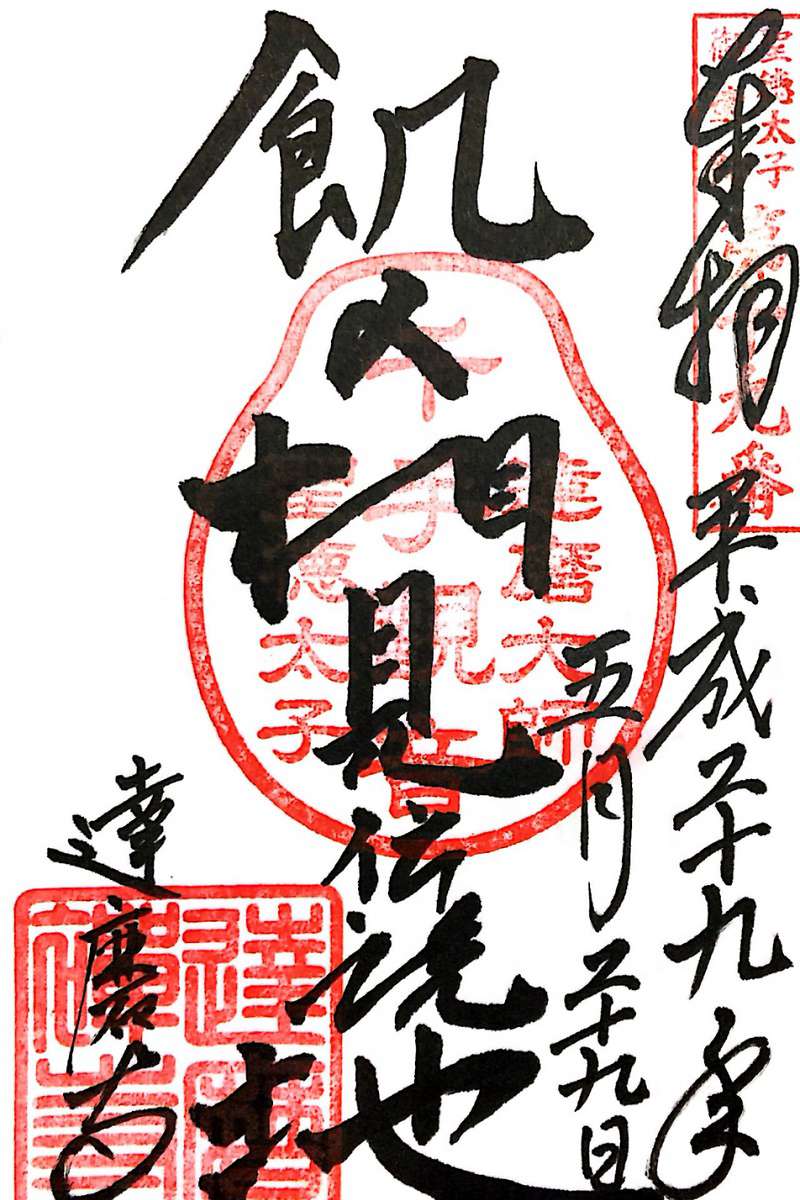 聖徳太子
九番
奉拝
平成二十九年
五月二十九日
飢人相見伝説地
達磨大師
千手観音
聖徳太子
達磨寺
達磨禅寺